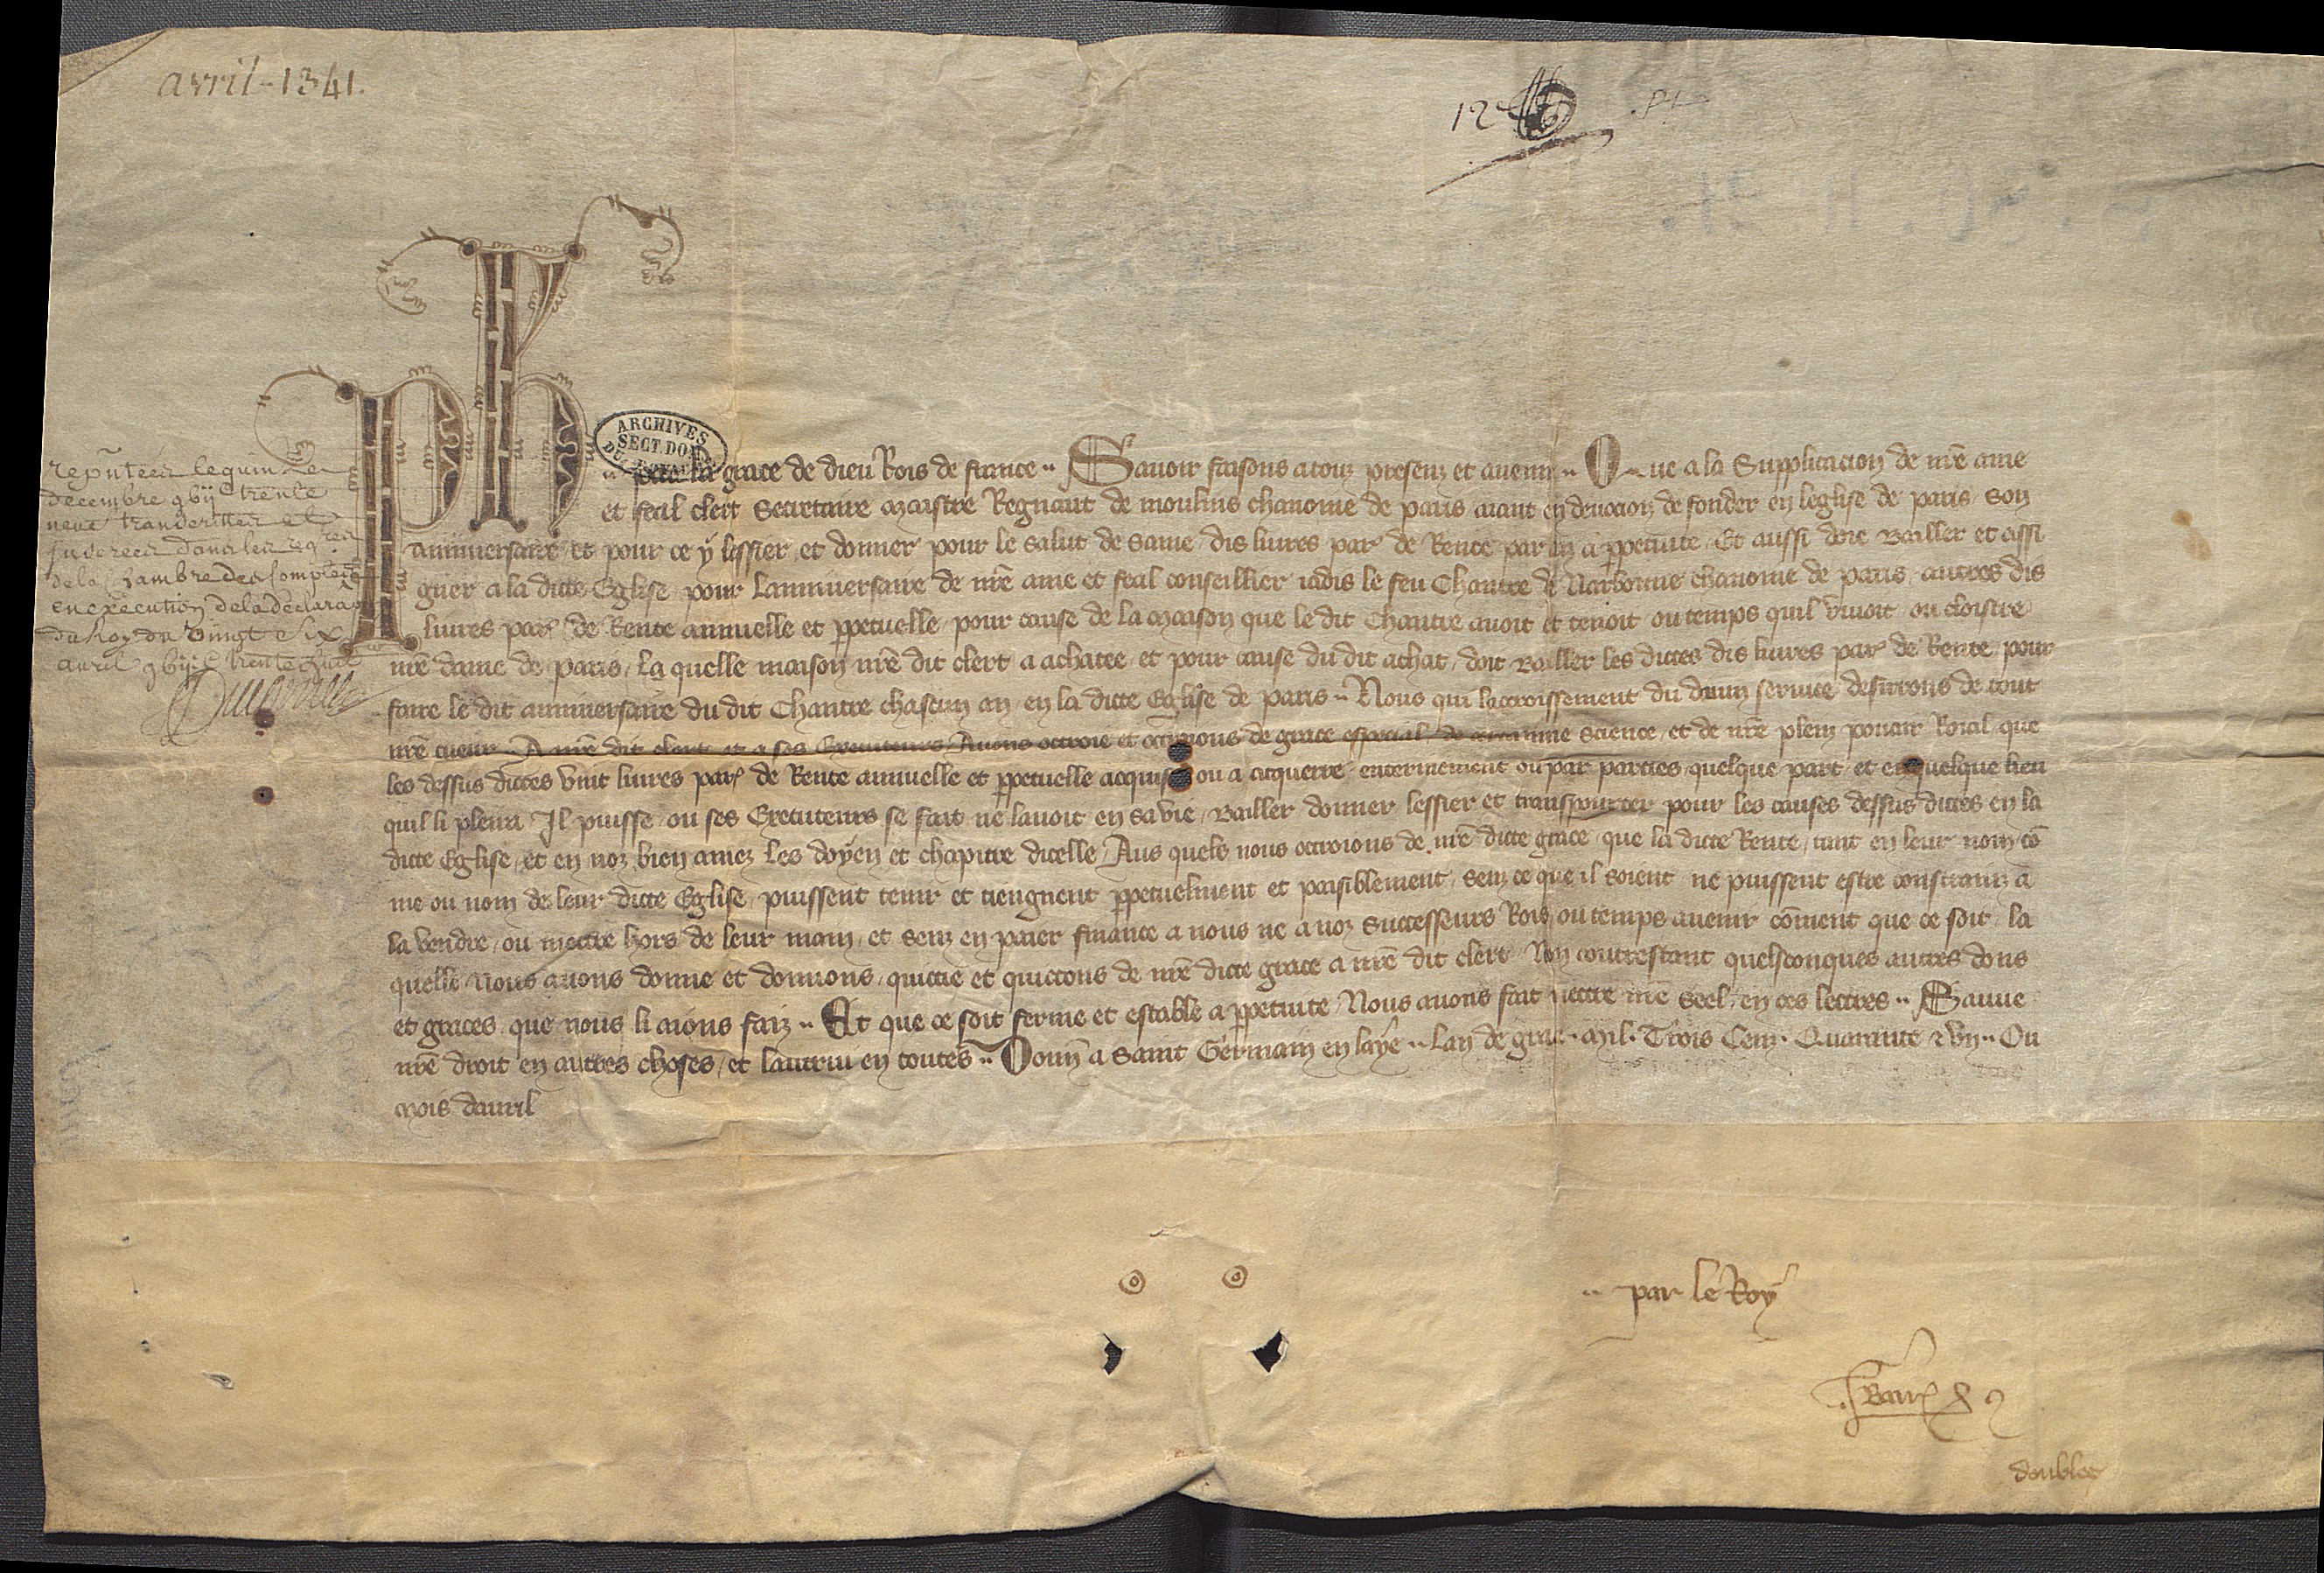 avril - 1341.
12
Ph par la grace de dieu Rois de france .. Savoir faisons a touz presenz et avenir .. Que a la Supplicacion de nr̃e ame
et feal clerc Secretaire maistre Regnaut de moulins chanoine de paris aiant en devocion de fonder en leglise de paris son
anniversaire et pour ce y lessier et donner pour le salut de same dis livres par̃ de Rente par an a p̱petuite Et aussi doie Bailler et assi
gner a la dicte Eglise pour lanniversaire de nr̃e ame et feal conseillier iadis le feu Chantre de Narbonne chanoine de paris autres dis
livres par̃ de Rente annuelle et p̱petuelle pour cause de la maison que le dit Chantre avoit et tenoit ou temps quil vivoit ou cloistre
nr̃e dame de paris / La quelle maison nr̃e dit clerc a achatee et pour cause du dit achat / doit Bailler les dictes dis livres par̃ de Rente pour
faire le dit anniversaire du dit Chantre chascun an en la dicte Eglise de paris .. Nous qui lacroissement du divin service desirrons de tout
nr̃e cueur A nr̃e dit clerc et a ses Executeurs Avons octroie et octroions de grace especial de certainne science / et de nr̃e plein povair Roial que
les dessus dictes vint livres par̃ de Rente annuelle et p̱petuelle acquises ou a acquerre enterinement ou par parties quelque part et en quelque lieu
quil li plaira Il puisse ou ses Executeurs se fait ne lavoit en sa vie / Bailler donner lessier et transporter pour les causes dessus dictes en la
dicte Eglise / et en noz bien amez Les doyen et chapitre dicelle / Aus quels nous octroions de nr̃e dicte grace que la dicte Rente / tant en leur nom cõ
me ou nom de leur dicte Eglise / puissent tenir et tiengnent p̱petuelment et paisiblement / senz ce que il soient ne puissent estre constrainz a
la vendre / ou mettre hors de leur main / et senz en paier finance a nous ne a noz successeurs Rois ou temps avenir cõment que ce soit / la
quelle Nous avons donne et donnons / quictie et quictons de nr̃e dicte grace a nr̃e dit clerc / Non contrestant quelsconques autres dons
et graces que nous li aions faiz .. Et que ce soit ferme et estable a p̱petuite Nous avons fait mettre nr̃e seel en ces lettres .. Sauve
nr̃e droit en autres choses / et lautrui en toutes .. Donñ a Saint Germain en laye .. Lan de grace . Mil . Trois Cenz . Quarante & un .. Ou
mois davril
repñtées le quinze
decembre gbijᶜ trente
neuf transcrittes et
Inserées dans les regres
de la Chambre des Comptes
en execution de la declaraõn
du Roy du vingt six
avril gbijᶜ trente huit
ARCHIVES
SECT. DOM.
DU ROYAUME
.. par le Roy
doublee